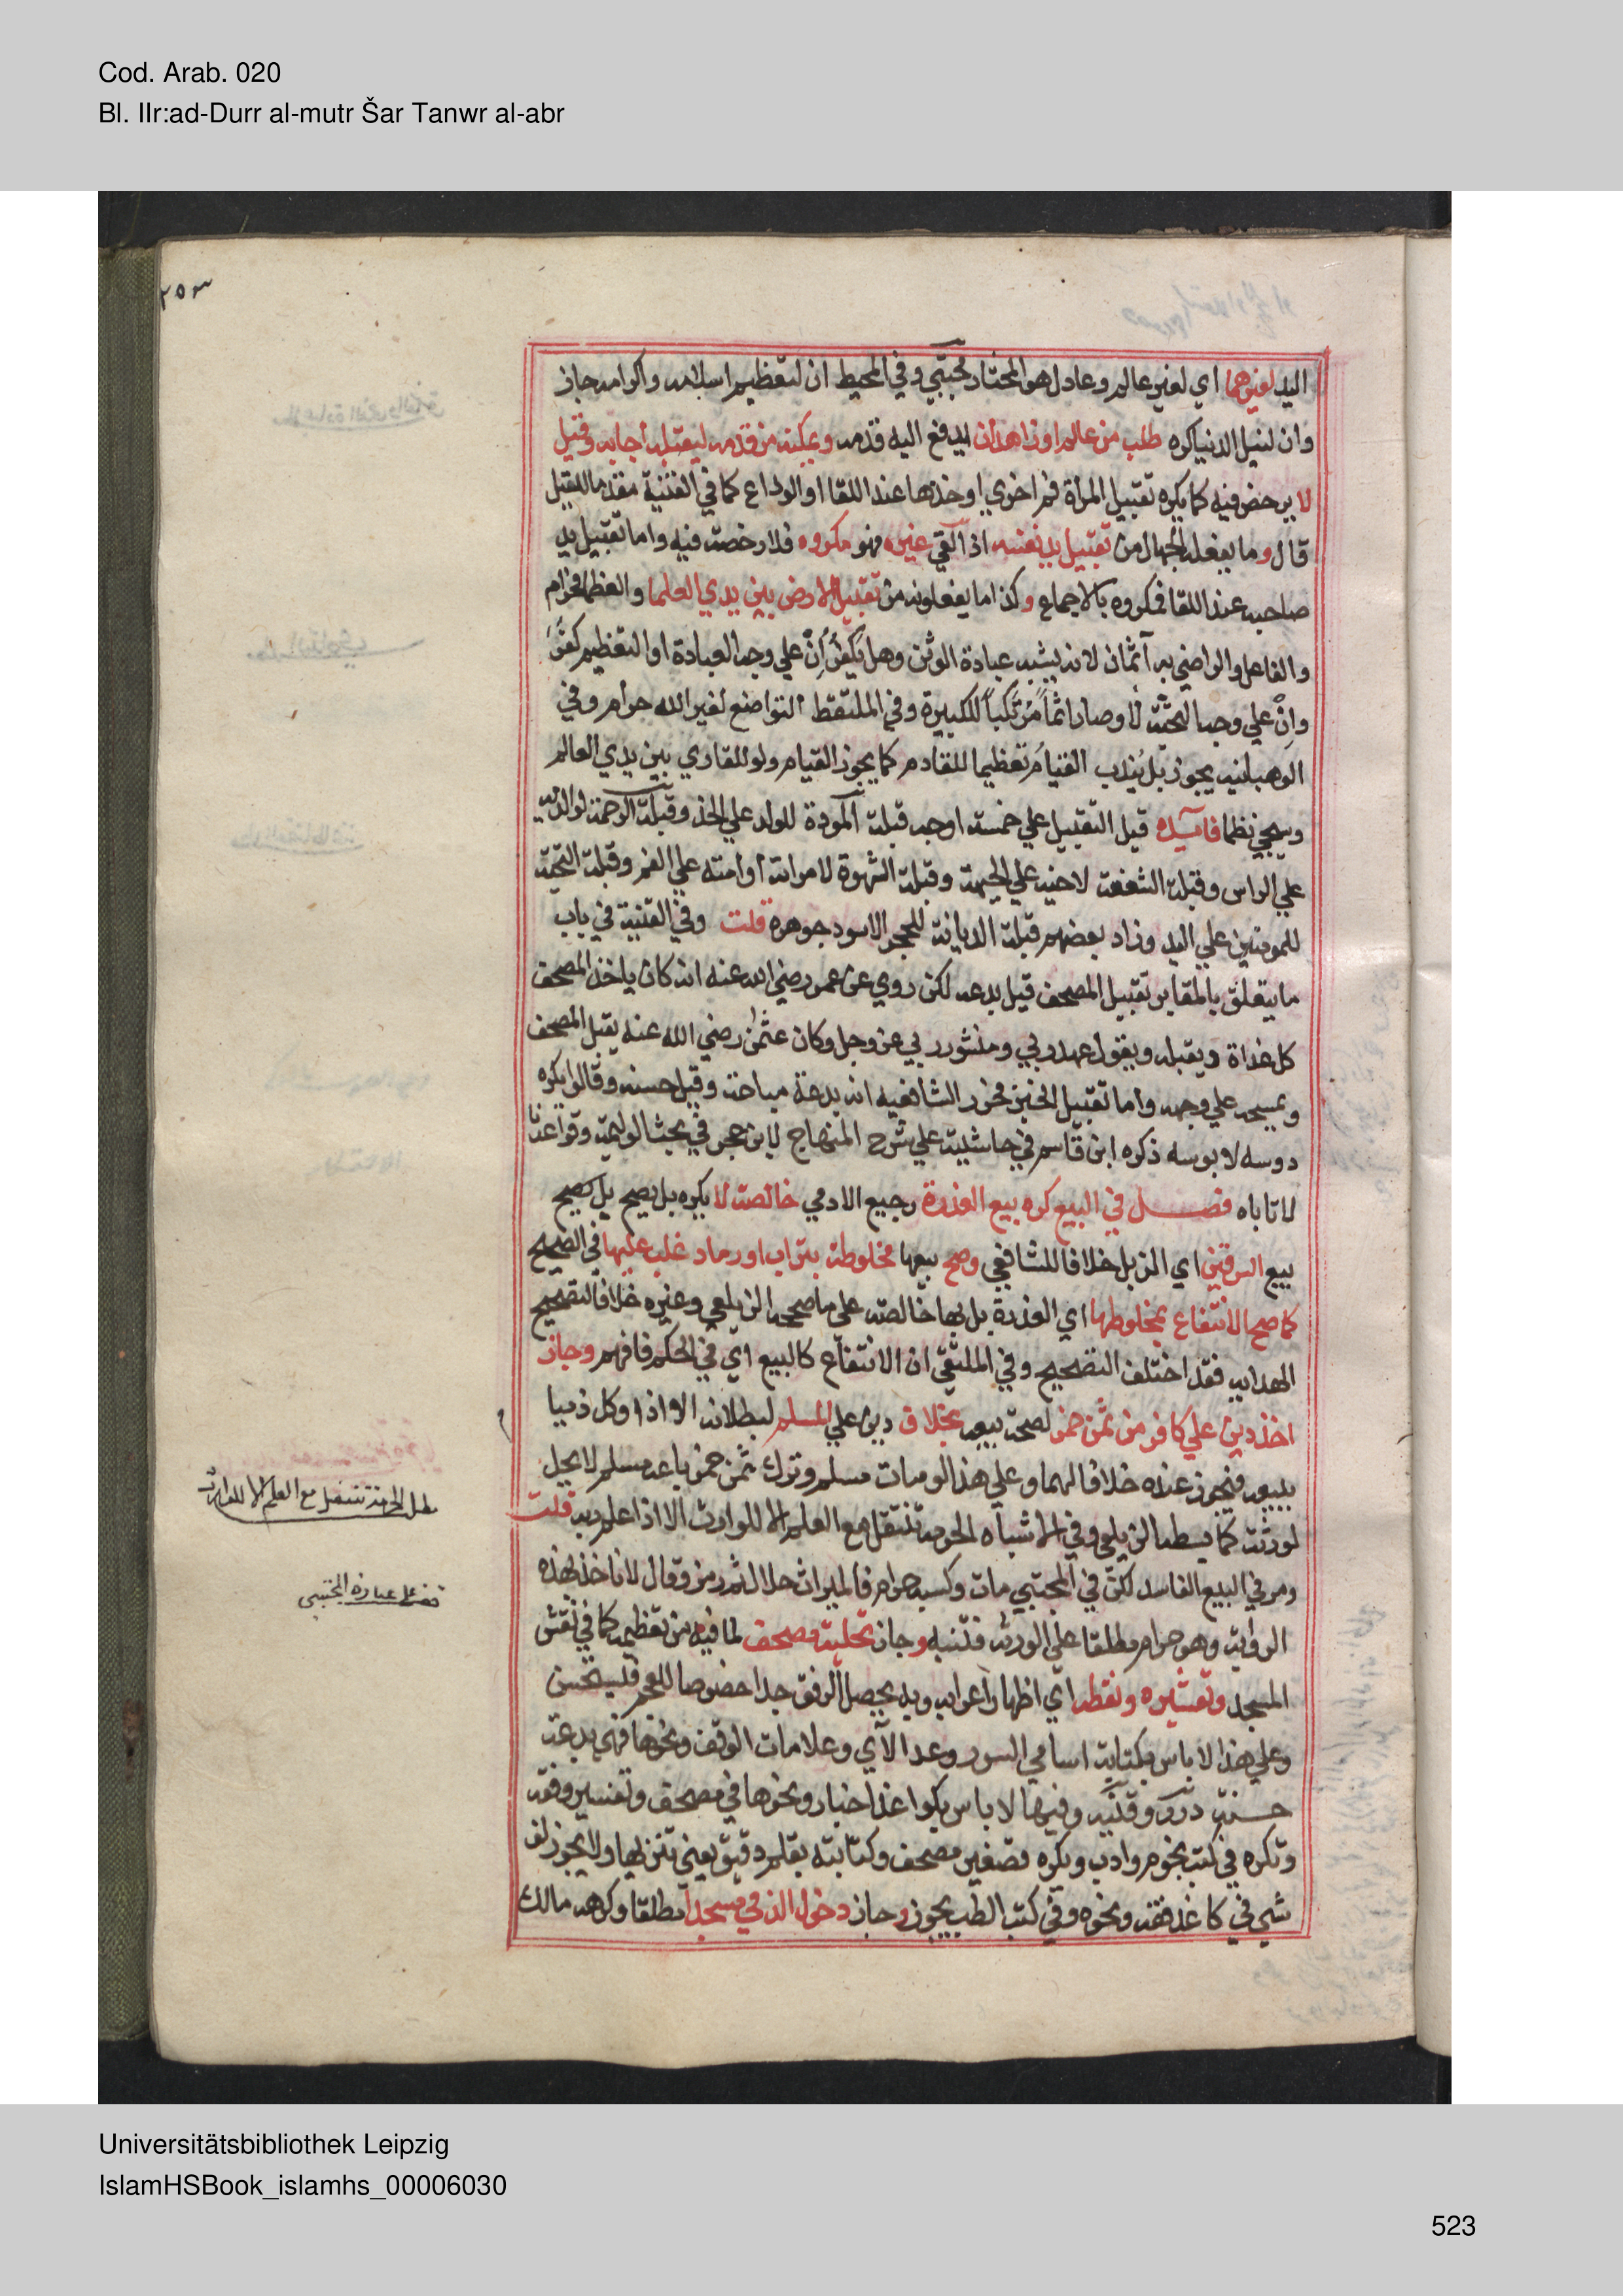 Cod. Arab. 020
Bl. IIr:ad-Durr al-mutr Šar Tanwr al-abr
٢٥٣
اليد لغيرهما اي لغير عالم وعادل هو المختار مجتبي وفي المحيط ان لتعظيم اسلامه واكرامه جاز
وان لنيل الدنيا كره طلب من عالم او زاهد ان يدفع اليه قدمه ويمكنه من قدمه ليقبله اجابه وقيل
لا يرخص فيه كما يكره تقبيل المراة فم اخري او خدها عند اللقا او الوداع كما في القنية مقدما للقيل
قال وما يفعله الجهال من تقبيل يد نفسه اذا لقي غيره فهو مكروه فلا رخصة فيه واما تقبيل يد
صاحبه عند اللقا فمكروه بالاجماع وكذا ما يفعلونه من تقبيل الارض بين يدي العلما والعظما فحرام
والفاعل والراضي به آثمان لانه يشبه عبادة الوثن وهل يكفر ان علي وجه العبادة او التعظيم كفر
وان علي وجه التحية لا وصار اثما مرتكبا للكبيرة وفي الملتقط التواضع لغير الله حرام وفي
الوهبانيه يجوز بل يندب القيام تعظيما للقادم كما يجوز القيام ولو للقاري بين يدي العالم
وسيجي نظما فايده قيل التقبيل علي خمسة اوجه قبلة المودة للولد علي الخد وقبلة الرحمة لوالديه
علي الراس وقبلة الشفقة لاخيه علي الجبهة وقبلة الشهوة لامراته او امته علي الفم وقبلة التحية
للمومنين علي اليد وزاد بعضهم قبلة الديانة للحجر الاسود جوهره قلت وفي القنية في باب
ما يتعلق بالمقابر تقبيل المصحف قيل بدعه لكن روي عن عمر رضي الله عنه انه كان ياخذ المصحف
كل غداة ويقبله ويقول عهد ربي ومنشور ربي عز وجل وكان عثمن رضي الله عنه يقبل المصحف
ويمسحه علي وجهه واما تقبيل الخبز فحرر الشافعيه انه بدعة مباحة وقيل حسنه وقالوا يكره
دوسه لا بوسه ذكره ابن قاسم في حاشيته علي شرح المنهاج لابن حجر في بحث الوليمة وقواعدنا
لا تاباه فصـل في البيع كره بيع العذرة رجيع الادمي خالصة لا يكره بل يصح بل يصح
بيع السرقين اي الزبل خلافا للشافعي وصح بيعها مخلوطة بتراب او رماد غلب عليها في الصحيح
كما صح الانتفاع بمخلوطها اي العذرة بل بها خالصة علي ما صححه الزيلعي وغيره خلافا لتصحيح
الهدايه فقد اختلف التصحيح وفي الملتقي ان الانتفاع كالبيع اي في الحكم فافهم وجاز
اخذ دين علي كافر من ثمن خمر لصحة بيعه بخلاف دين علي المسلم لبطلانه الا اذا وكل ذميا
ببيعه فيجوز عنده خلافا لهما وعلي هذا لو مات مسلم وترك ثمن خمر باعه مسلم لا يحل
لورثته كما بسطه الزيلعي وفي الاشباه الحرمة تنتقل مع العلم الا للوارث الا اذا علم ربه قلت
ومر في البيع الفاسد لكن في المجتبي مات وكسبه حرام فالميراث حلال ثم رمز وقال لا ناخذ بهذه
الرواية وهو حرام مطلقا علي الورثة فتنبه وجاز تحلية مصحف لما فيه من تعظيمه كما في نقش
المسجد وتعشيره ونقطه اي اظهار اعرابه وبه يحصل الرفق جدا خصوصا للعجم فيستحسن
وعلي هذا لا باس بكتابة اسامي السور وعد الآي وعلامات الوقف ونحوها فهي بدعة
حسنة درر وقنيه وفيها لا باس بكواغد اخبار ونحوها في مصحف وتفسير وفقه
وتكره في كتب نجوم وادب ويكره تصغير مصحف وكتابته بقلم دقيق يعني تنزيها ولا يجوز لف
شي في كاغد فقه ونحوه وفي كتب الطب يجوز وجاز دخول الذمي مسجدا مطلقا وكرهه مالك
مطل الحرمة تنتقل مع العلم الا للوارث
قف على عبارة المجتبى
Universitätsbibliothek Leipzig
IslamHSBook_islamhs_00006030
523